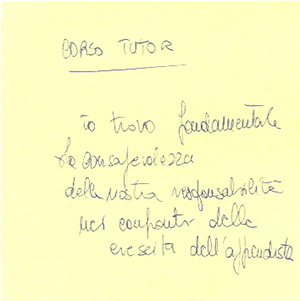 CORSO TUTOR
io trovo fondamentale
la consapevolezza
della nostra responsabilità
nei confronti della
crescita dell'apprendista